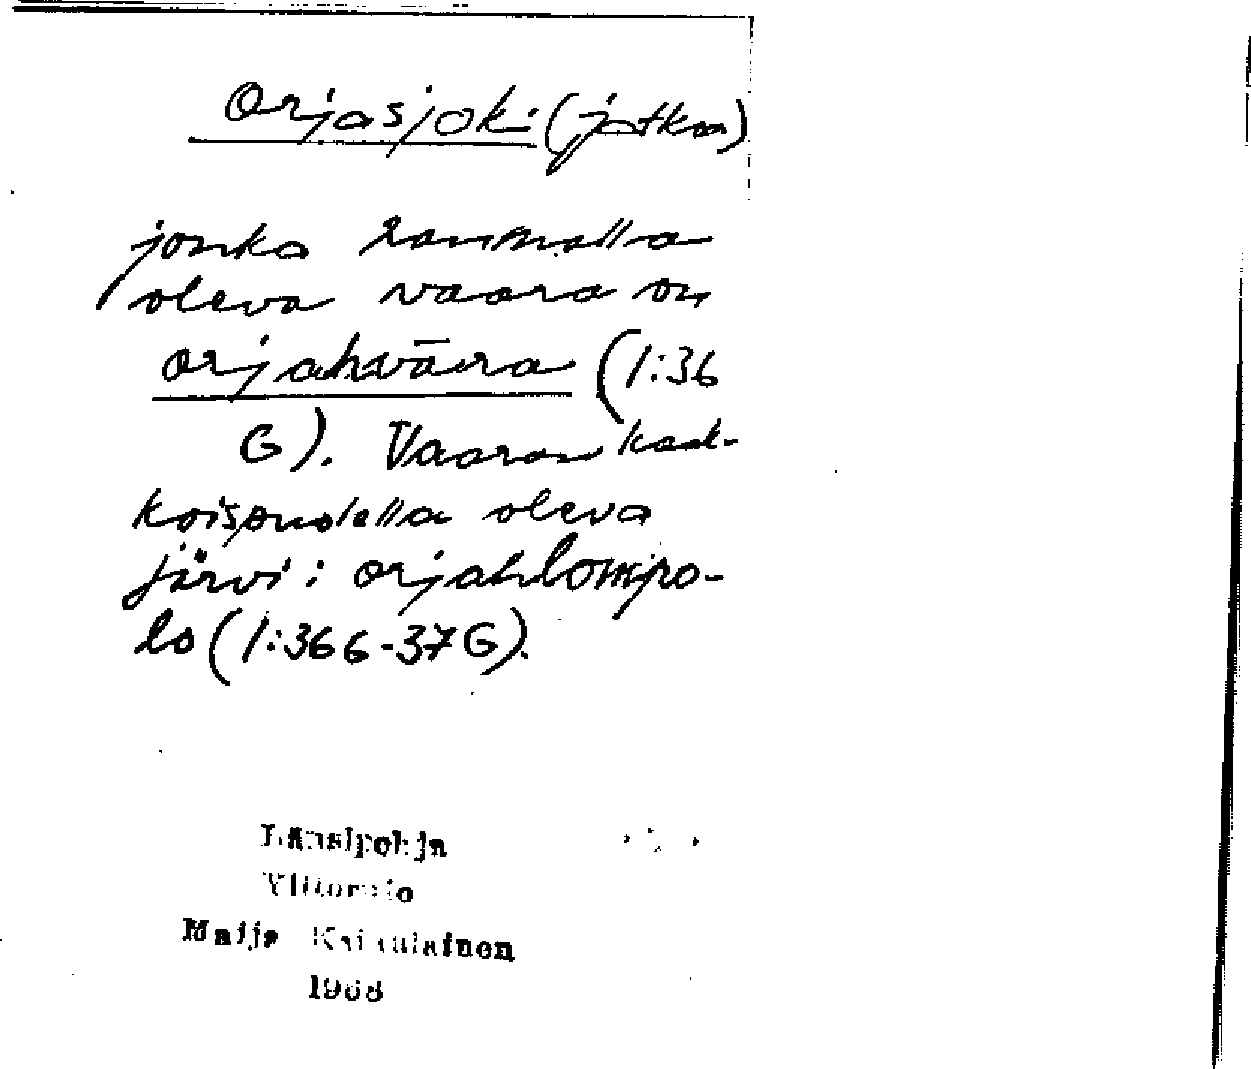 Orjasjoki (jatkoa)
jonka rannalla
oleva vaara on
orjahvāra (1:36
G). Vaaran kaak-
koispuolella oleva
järvi: orjahlompo-
lo (1:36G-37G).
Länsipohja
Ylitornio
Maija
1968